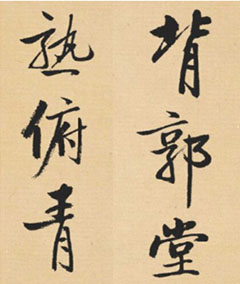 背郭堂
熟俯青